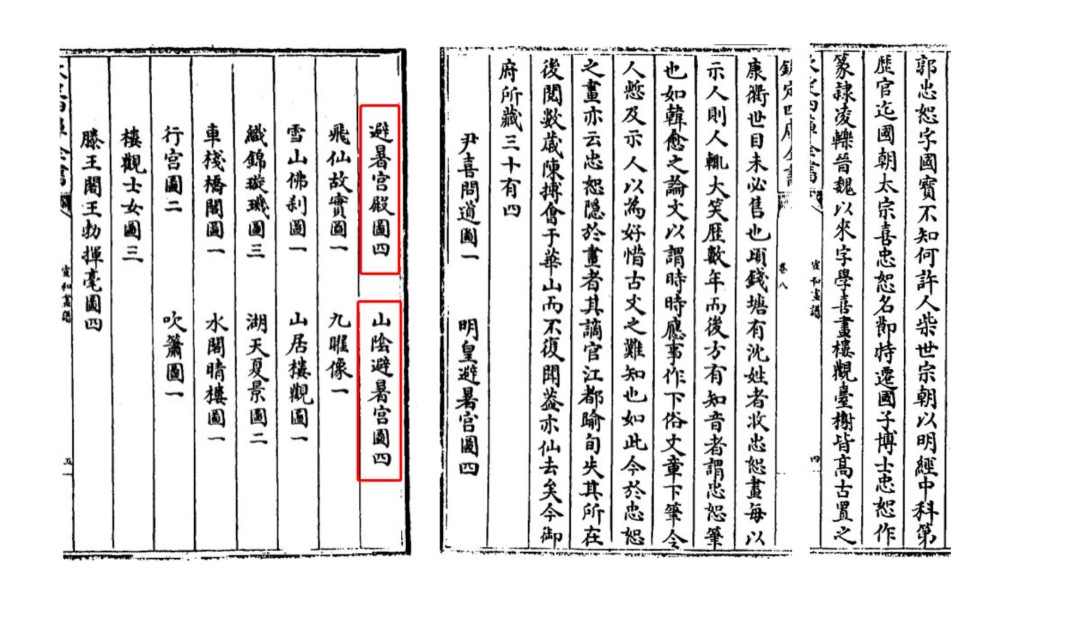 郭忠恕字國寶不知何許人柴世宗朝以明經中科第
歴官迄國朝太宗喜忠恕名節特遷國子博士忠恕作
篆隷凌轢晉魏以來字學喜畫樓觀臺榭皆髙古置之
欽定四庫全書
宣和畫譜
卷八
四
康衢世目未必售也頃錢塘有沈姓者收忠恕畫每以
示人則人輒大笑歴數年而後方有知音者謂忠恕筆
也如韓愈之論文以謂時時應事作下俗文章下筆令
人慙及示人以為好惜古文之難知也如此今於忠恕
之畫亦云忠恕隱於畫者其謫官江都踰旬失其所在
後閱數歲陳摶會于華山而不復聞葢亦仙去矣今御
府所藏三十有四
尹喜問道圖一
明皇避暑宫圖四
避暑宫殿圖四
山隂避暑宫圖四
飛仙故實圖一
九曜像一
雪山佛刹圖一
山居樓觀圖一
織錦璇璣圖三
湖天夏景圖二
車棧橋閣圖一
水閣晴樓圖一
行宫圖二
吹簫圖一
樓觀士女圖三
滕王閣王勃揮毫圖四
宣和畫譜
五